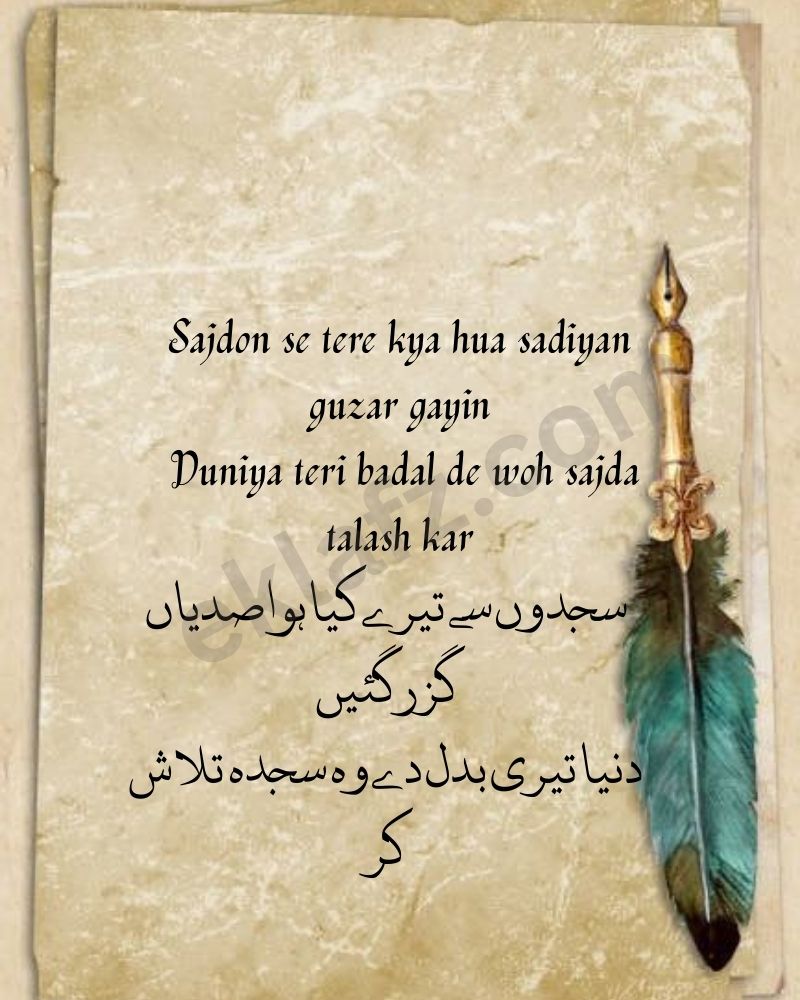 Sajdon se tere kya hua sadiyan
guzar gayin
Duniya teri badal de woh sajda
talash kar
سجدوں سے تیرے کیا ہوا صدیاں
گزر گئیں
دنیا تیری بدل دے وہ سجدہ تلاش
کر
eklafz.com